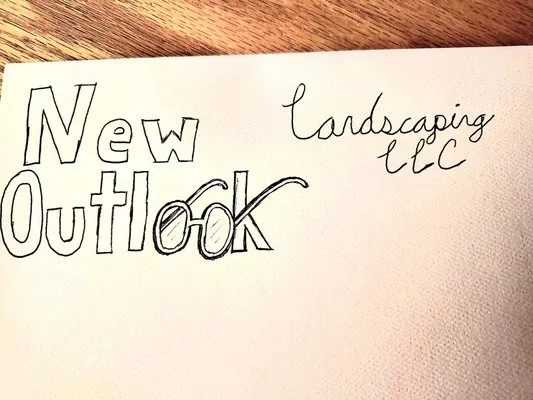 New
Outlook
Landscaping
LLC